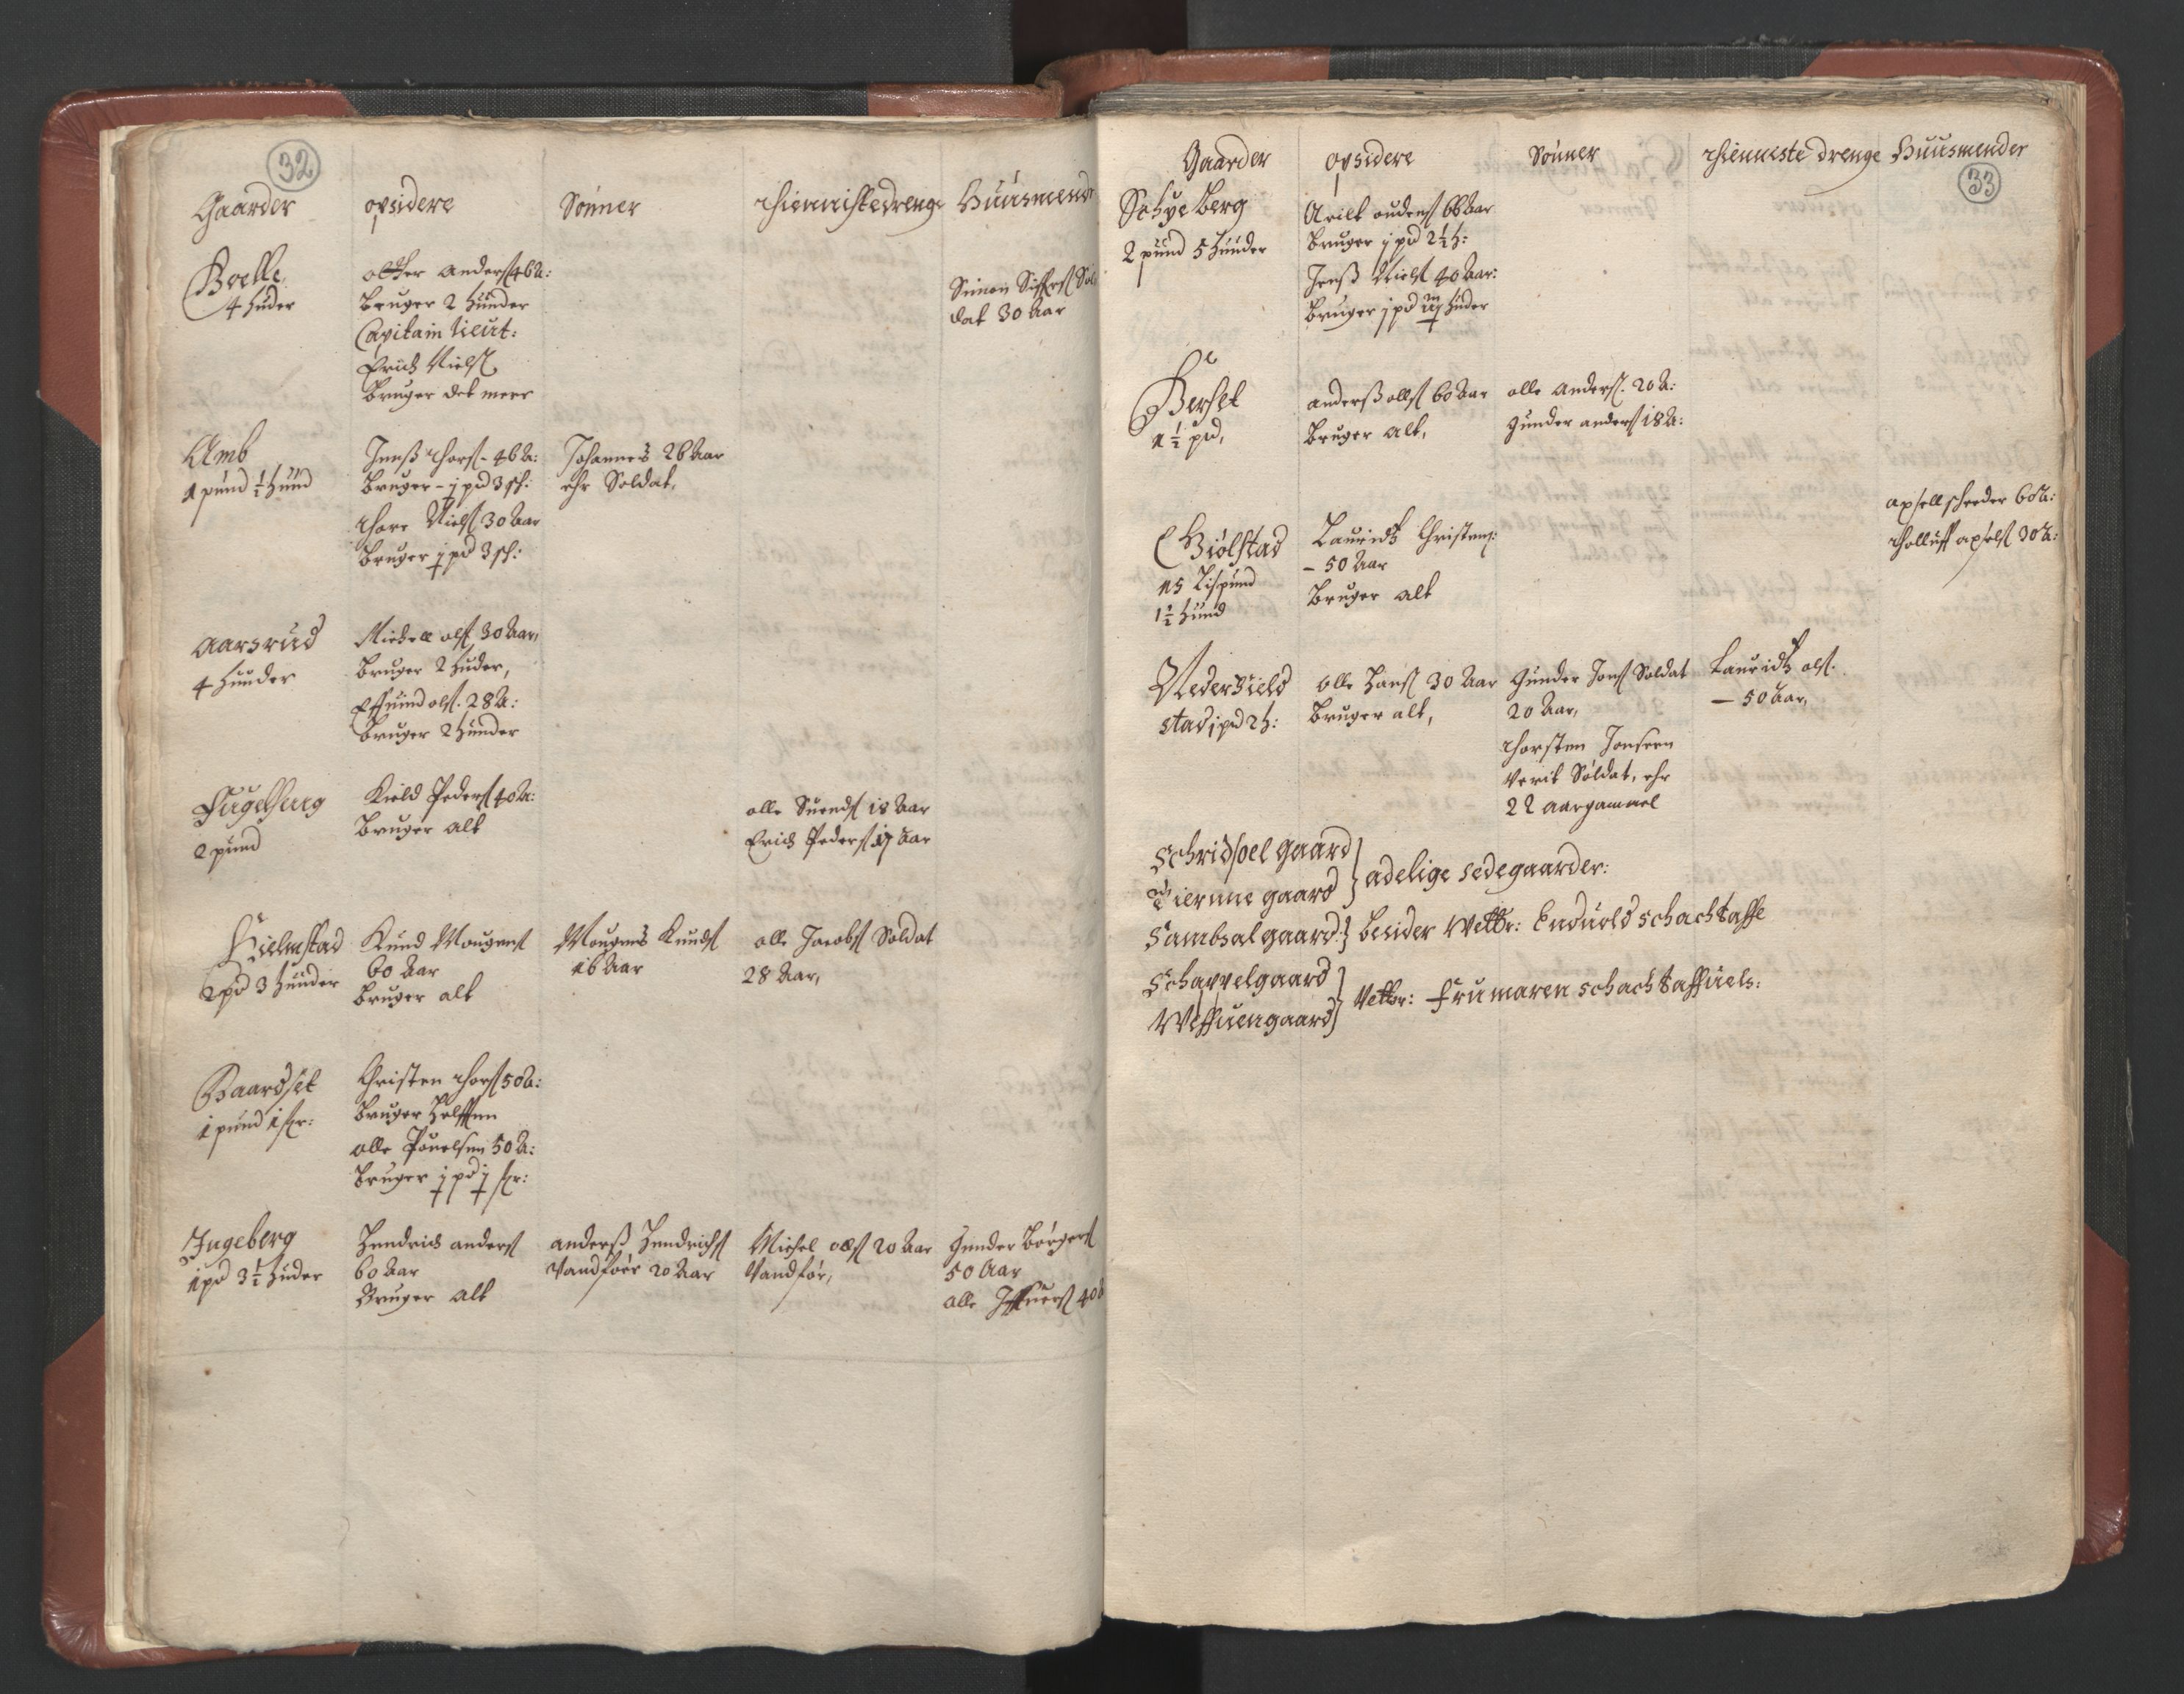 32
Gaarder opsidere Sønner thiennistedrenge Huusmend
Boelle
4 huder
Otther Anders 46 A:
Bruger 2 Hunder
Capitain lieut:
Erich Niels
Bruger det meer
Simen Siffers Sol
dat 30 Aar
Amb
1 pund ½ hund
Jens Thors - 46 A:
Bruger - j pd 3 sk:
Thore Niels 30 Aar
Bruger j pd 3 sk:
Johannes 26 Aar
ehr Soldat,
Aarsrud
4 hunder
Michell ols 30 Aar,
Bruger 2 huder,
ols. 28 A:
Bruger 2 hunder
Fugelberg
2 pund
Kield Peders 40 A:
Bruger alt
olle Suends 18 Aar
Erich Peders 17 Aar
Hielmstad
2 pd 3 hunder
Knud Mougens
60 Aar
Bruger alt
Mougens Knuds
16 Aar
olle Jacobs Soldat
28 Aar,
Baardset
1 pund 1 skr:
Christen Thors 50 A:
Bruger helfften
olle Pouelsen 50 A:
Bruger j pd j skr:
Ingeberg
1 pd 3½ huder
Hendrich anders
60 Aar
Bruger alt
anders Hendrichs
Vandføer 20 Aar
Michel ols 20 Aar
Vandfør,
Gunder Børgers
50 Aar
olle Iffuers 40
33
Gaarder opsidere Sønner thienneste drenge Huusmender
Schye berg
2 pund 5 hunder
Arilt oudens 66 Aar
Bruger j pd 2½ h:
Jens Niels 40 Aar:
Bruger j pd huder
Berset
1½ pd,
anders olls 60 Aar
Bruger alt,
olle Anders. 20 A:
Gunder anders 18 A:
Giølstad
15 Lispund
1½ hund
Lauridtz Christens:
- 50 Aar
Bruger alt
apsell schreder 60 A:
tholluff apsels 30 A:
Nederkield
stad j pd 2 h:
olle Hans 30 Aar
Bruger alt,
Gunder Jons Soldat
20 Aar,
Thorsten Jonsen
Verit Soldat, ehr
22 aar gamael
Lauridtz ols.
- 50 Aar,
Schridsoel gaard
Tierune gaard } adelige sedegaarder:
Sambsal gaard } besider Welbr: Enduold schachtaffe
Schappelgaard
Weffuengaard } Velbr: fru maren schachtaffuels: